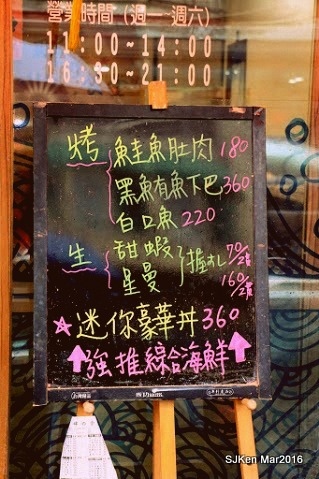 營業時間(週一~週六)
11:00~14:00
16:30~21:00
烤 鮭魚肚肉 180
黑魚有魚下巴 360
白口魚 220
生 甜蝦 握扎 70/2貫
星曼 160/2貫
☆迷你豪華丼360
↑強推綜合海鮮↑
SJKen Mar2016